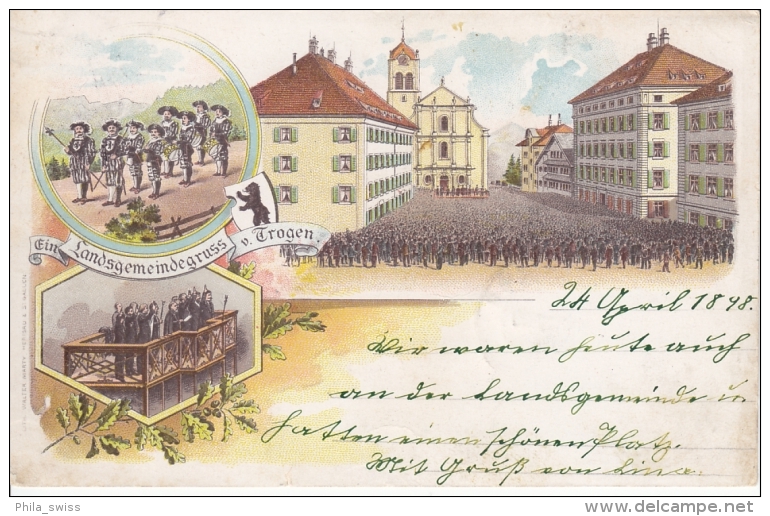 Ein Landsgemeindegruss v. Trogen.
24 April 1898.
Wir waren heute auch
an der Landsgemeinde u.
hatten einen schönen Platz.
Mit Gruß von Lina.
Phila_swiss
delcampe.net